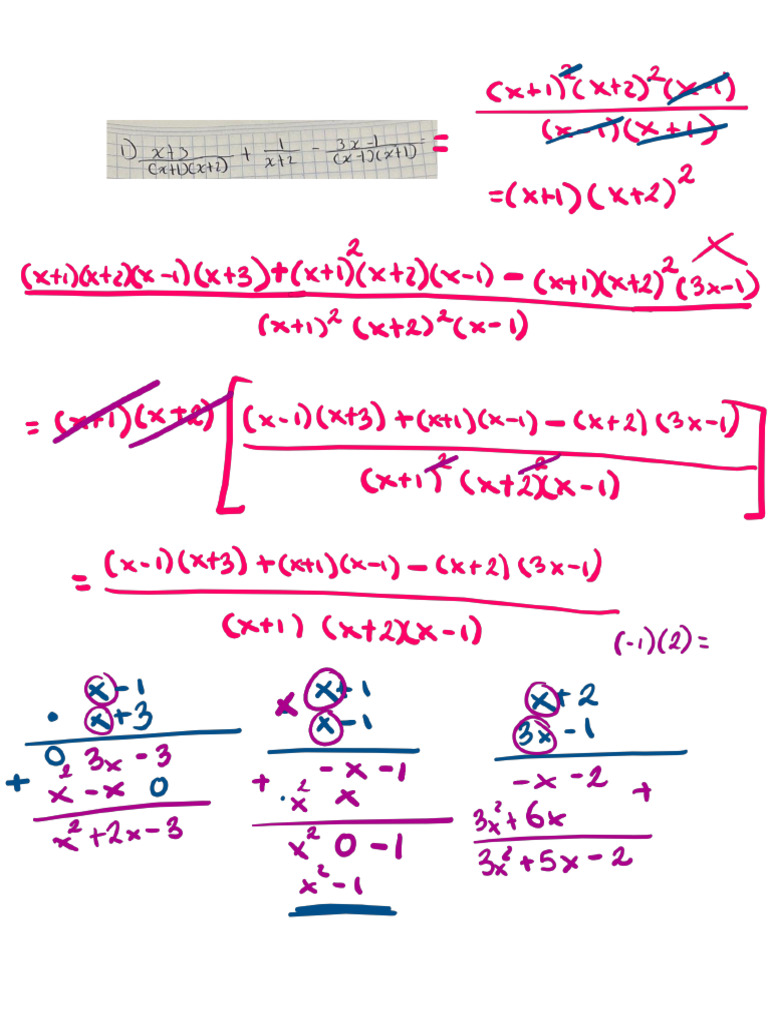 (x+1)²(x+2)²(x-1)
(x-1)(x+1)
1) x+3/(x+1)(x+2) + 1/x+2 - 3x-1/(x-1)(x+1) =
=(x+1)(x+2)²
(x+1)(x+2)(x-1)(x+3)+(x+1)²(x+2)(x-1) - (x+1)(x+2)²(3x-1)
(x+1)² (x+2)²(x-1)
= (x+1)(x+2) [(x-1)(x+3)+(x+1)(x-1)-(x+2)(3x-1)]
(x+1)² (x+2)²(x-1)
= (x-1)(x+3)+(x+1)(x-1)-(x+2)(3x-1)
(x+1) (x+2)(x-1)
(-1)(2)=
x-1
· x+3
0 3x-3
+ x²-x 0
x²+2x-3
x x+1
x-1
+ -x-1
x² x
x² 0-1
x²-1
x+2
3x-1
-x-2 +
3x²+6x
3x²+5x-2